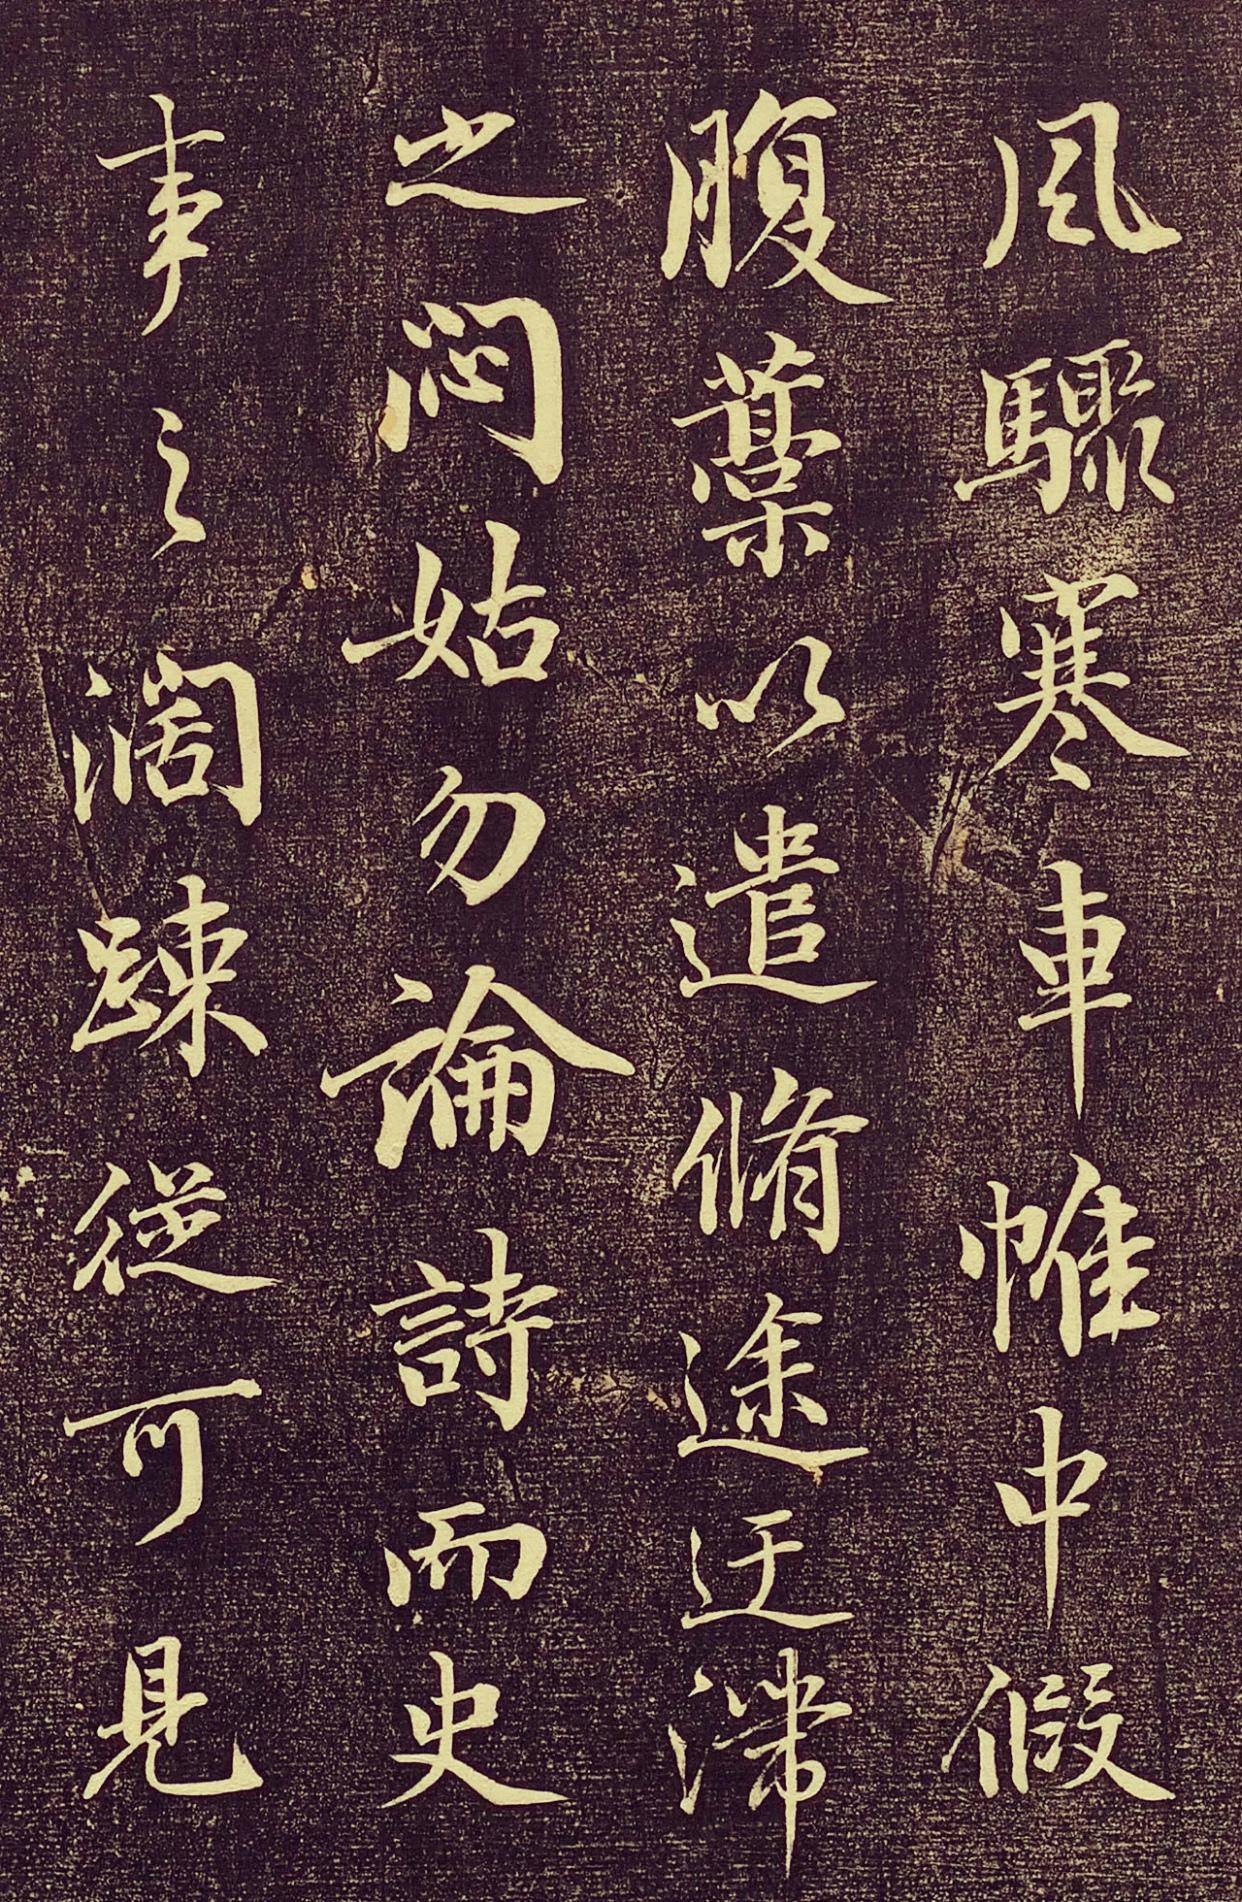 風驟寒車帷中假
腹藁以遣脩途迂滯
之悶姑勿論詩而史
事之濶踈從可見